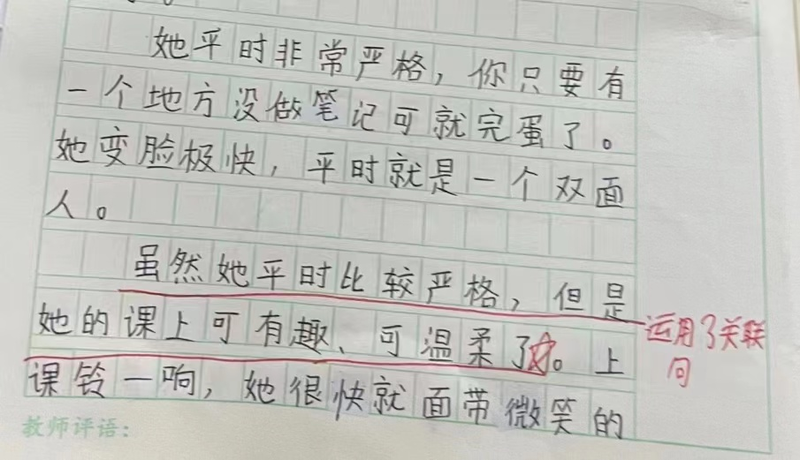 她平时非常严格，你只要有
一个地方没做笔记可就完蛋了。
她变脸极快，平时就是一个双面
人。
虽然她平时比较严格，但是
她的课上可有趣、可温柔了。上
运用了关联
词
课铃一响，她很快就面带微笑的
教师评语：